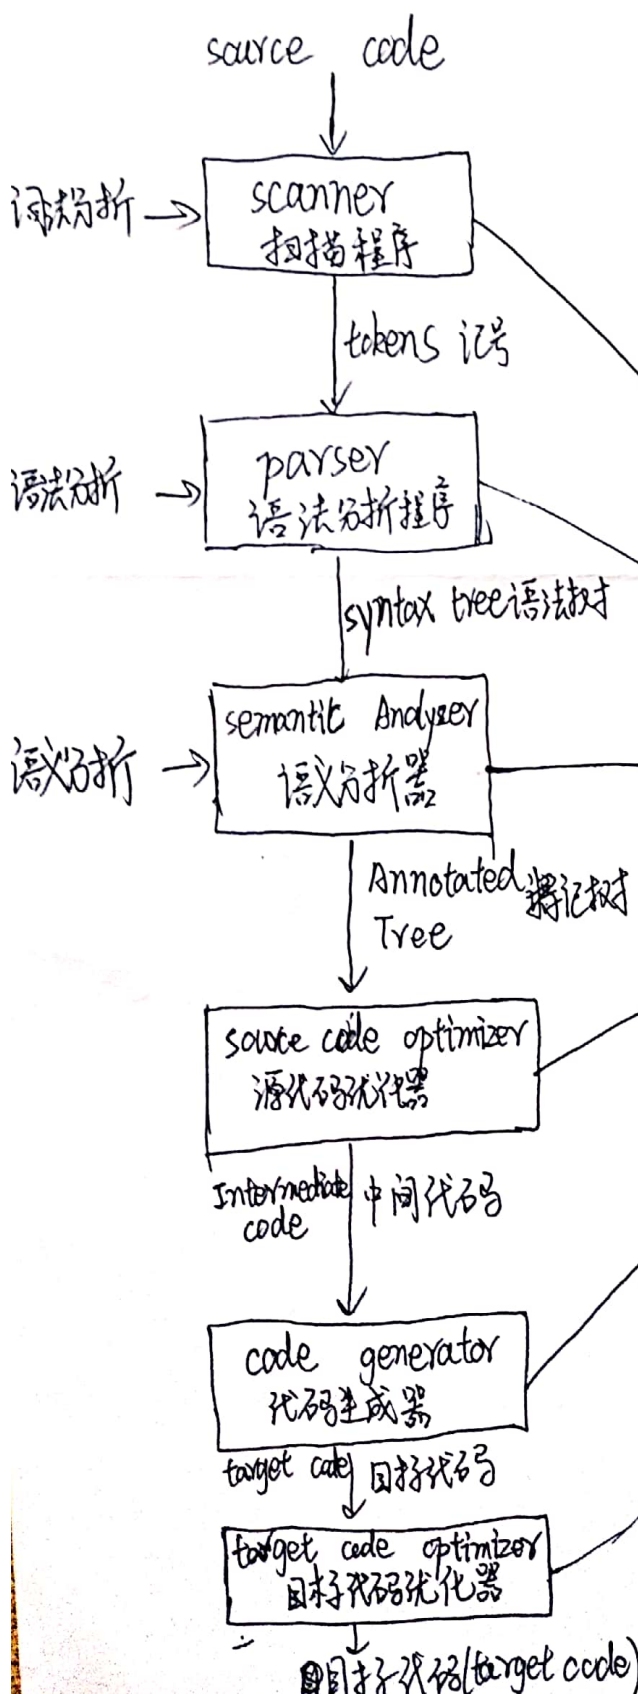 source code
词法分析
scanner
扫描程序
tokens 记号
语法分析
parser
语法分析程序
syntax tree 语法树
语义分析
semantic Analyzer
语义分析器
Annotated
Tree
记树
source code optimizer
源代码优化器
Intermediate
code
中间代码
code generator
代码生成器
target code
目标代码
target code optimizer
目标代码优化器
目标代码(target code)